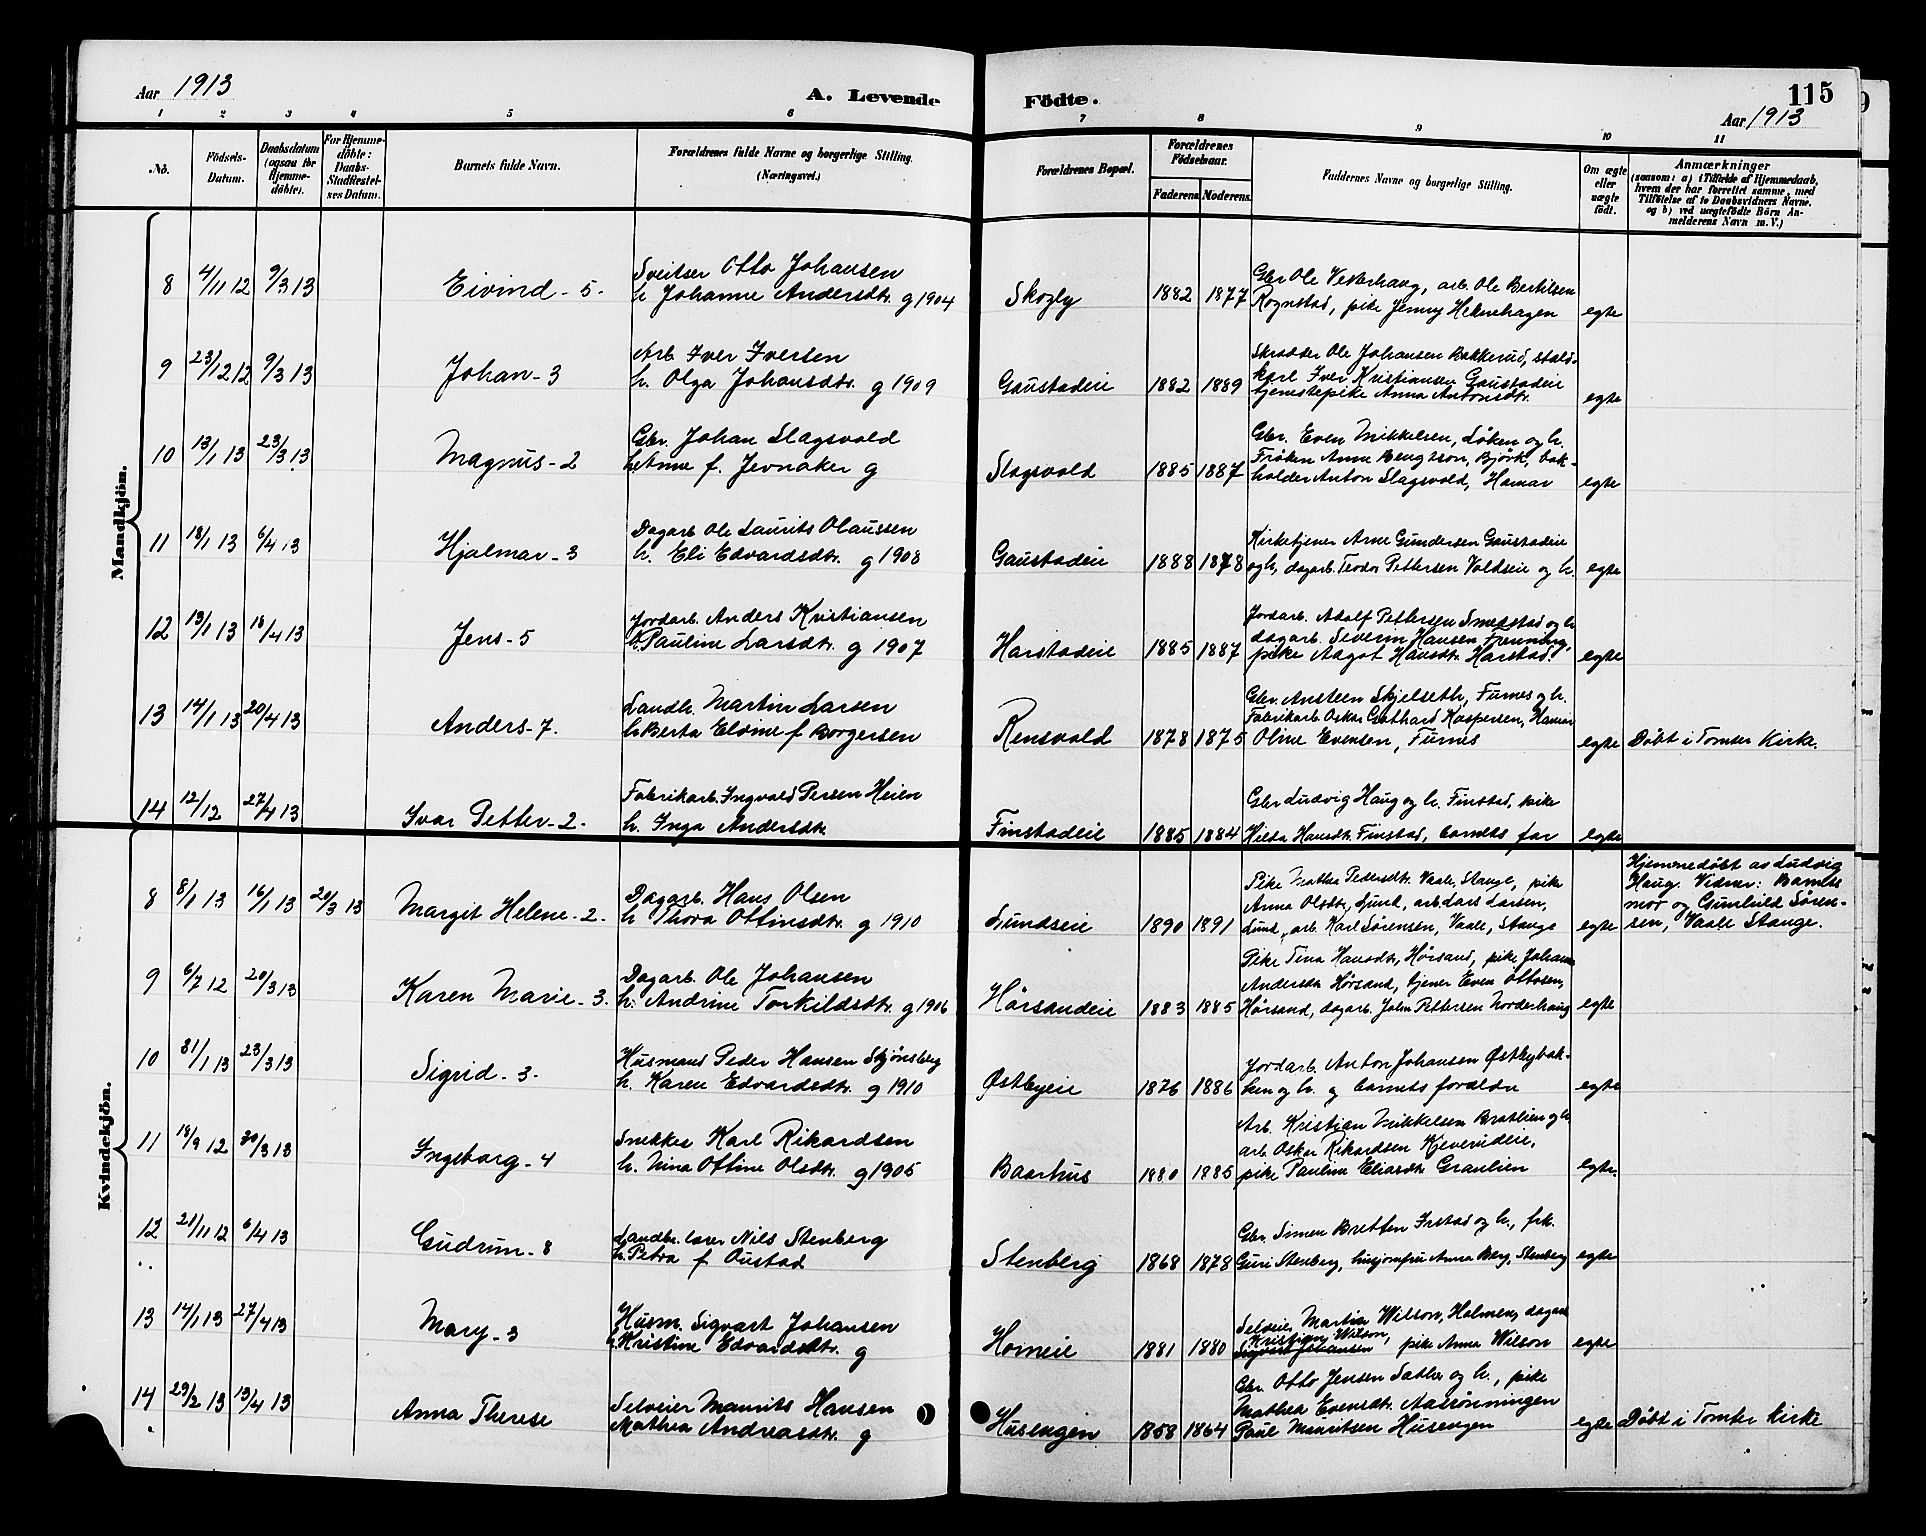 Aar 1913
A. Levende
Födte.
115
Aar 1913
1 2 3 4 5 6 7 8 9 10 11
No.
Födsels-
Datum.
Daabsdatum
(ogsaa for
Hjemme-
döbte).
For Hjemme-
döbte:
Daabs-
Stadfæstel-
ses Datum.
Barnets fulde Navn.
Forældrenes fulde Navne og borgerlige Stilling.
(Næringsvei.)
Forældrenes Bopæl.
Forældrenes
Födselsaar.
Faderens.
Moderens.
Faddernes Navne og borgerlige Stilling.
Om ægte
eller
uægte
födt.
Anmærkninger
(saasom: a) i Tilfælde af Hjemmedaab,
hvem der har forrettet samme, med
Tilföielse af to Daabsvidners Navne,
og b) ved uægtefödte Börn An-
melderens Navn m. V.)
Mandkjön.
8 4/11 12 9/3 13 Eivind - 5 -
Sveitser Otto Johansen
h. Johanne Andersdtr. g 1904
Skogly 1882 1877
Gbr Ole Vesterhaug, arb. Ole Bertilsen
Rognstad, pike Jenny Helsenhagen
egte
9 23/12 12 9/3 13 Johan - 3
Arb. Iver Iversen
h. Olga Johansdtr. g 1909
Gaustadeie 1882 1889
Skrædder Ole Johansen Bakkerud, stald-
karl Iver Kristiansen Gaustadeie
tjenestepike Anna Antonsdtr.
egte
10 13/1 13 23/3 13 Magnus - 2
Gbr. Johan Slagsvold
h. Anne f. Jevnaker g
Slagsvold 1885 1887
Gbr. Even Mikkelsen, Løken og h.
Frøken Anne Bengtson, Bjørk, bok-
holder Anton Slagsvold, Hamar
egte
11 18/1 13 6/4 13 Hjalmar - 3
Dagarb. Ole Laurits Olaussen
h. Eli Edvardsdtr. g 1908
Gaustadeie 1888 1878
Kirketjener Arne Gundersen Gaustadeie
og h, dagarb. Teodor Pettersen Voldseie og h.
egte
12 13/1 13 16/4 13 Jens - 5
Jordarb. Anders Kristiansen
h. Pauline Larsdtr. g 1907
Harstadeie 1885 1887
Jordarb. Adolf Pettersen Smedstad og h
dagarb. Severin Hansen
pike Aagot Hansdtr. Harstad.
egte
13 14/1 13 20/4 13 Anders - 7.
Landh. Martin Larsen
h. Berta Elvine f Borgersen
Rensvold 1878 1875
Gbr. Ansteen Skjelseth, Furnes og h.
Fabrikarb. Oskar Gothard Kaspersen, Hamar
Oline Evensen, Furnes
egte Døbt i Tomter Kirke.
14 12/12 27/4 13 Ivar Petter - 2 -
Fabrikarb. Ingvald Persen Heien
h. Inga Andersdtr
Finstadeie 1885 1884
Gbr Ludvig Haug og h. Finstad, pike
Hilda Hansdtr. Finstad, barnets far
egte
Kvindekjön.
8 8/1 13 16/1 13 20/3 13 Margit Helene - 2 -
Dagarb. Hans Olsen
h. Thora Ottinsdtr. g 1910
Lundseie 1890 1891
Pike Mathea Pedersdtr. Vaale, Stange, pike
Anna Olsdtr, Lund, arb. Lars Larsen,
Lund, arb. Karl Sørensen, Vaale, Stange
egte
Hjemmedøbt av Ludvig
Haug. Vidner: Barnets
mor og Gunhild Søren-
sen, Vaale Stange.
9 6/7 12 20/3 13 Karen Marie - 3.
Dagarb. Ole Johansen
h. Andrine Torkildsdtr. g 1906
Hørsandeie 1883 1885
Pike Tina Hansdtr, Hørsand, pike Johanne
Andersdtr Hørsand, tjener Even Ottosen,
Hørsand, dagarb. John Pettersen Norderhaug
egte
10 31/1 13 23/3 13 Sigrid - 3 -
Husmand Peder Hansen Skjønsberg
h. Karen Edvardsdtr. g 1910
Østbyeie 1876 1886
Jordarb. Anton Johansen Østbybak-
ken og h. og barnets forældre
egte
11 18/9 12 30/3 13 Ingeborg - 4
Snekker Karl Rikardsen
h. Nina Ottine Olsdtr. g 1905
Baarhus 1880 1885
Arb. Kristian Mikkelsen Bratlien og h.
arb. Oskar Rikardsen Kjeverudeie,
pike Pauline Eliasdtr Granlien
egte.
12 21/11 12 6/4 13 Gudrun - 8
Landbr. lærer Nils Stenberg
h. Petra f Oustad
Stenberg 1868 1878
Gbr. Simen Bretten Irstad og h., frk.
Guri Stenberg, husjomfru Anna Berg, Stenberg
egte
13 14/1 13 27/4 13 Mary - 3
Husm. Sigvart Johansen
h. Kristine Edvardsdtr. g
Horneie 1881 1880
Selveier Martin Wilson, Holmen, dagarb
Kristian Wilson,
Sigvart Johansen pike Anna Wilson
egte
14 29/2 13 13/4 13 Anna Therese
Selveier Maurits Hansen
Mathea Andreasdtr. g
Husengen 1858 1864
Gbr. Otto Jensen Sæther og h., pike
Mathea Evensdtr. Aasrønningen
Paul Mauritsen Husengen
egte Døbt i Tomter Kirke